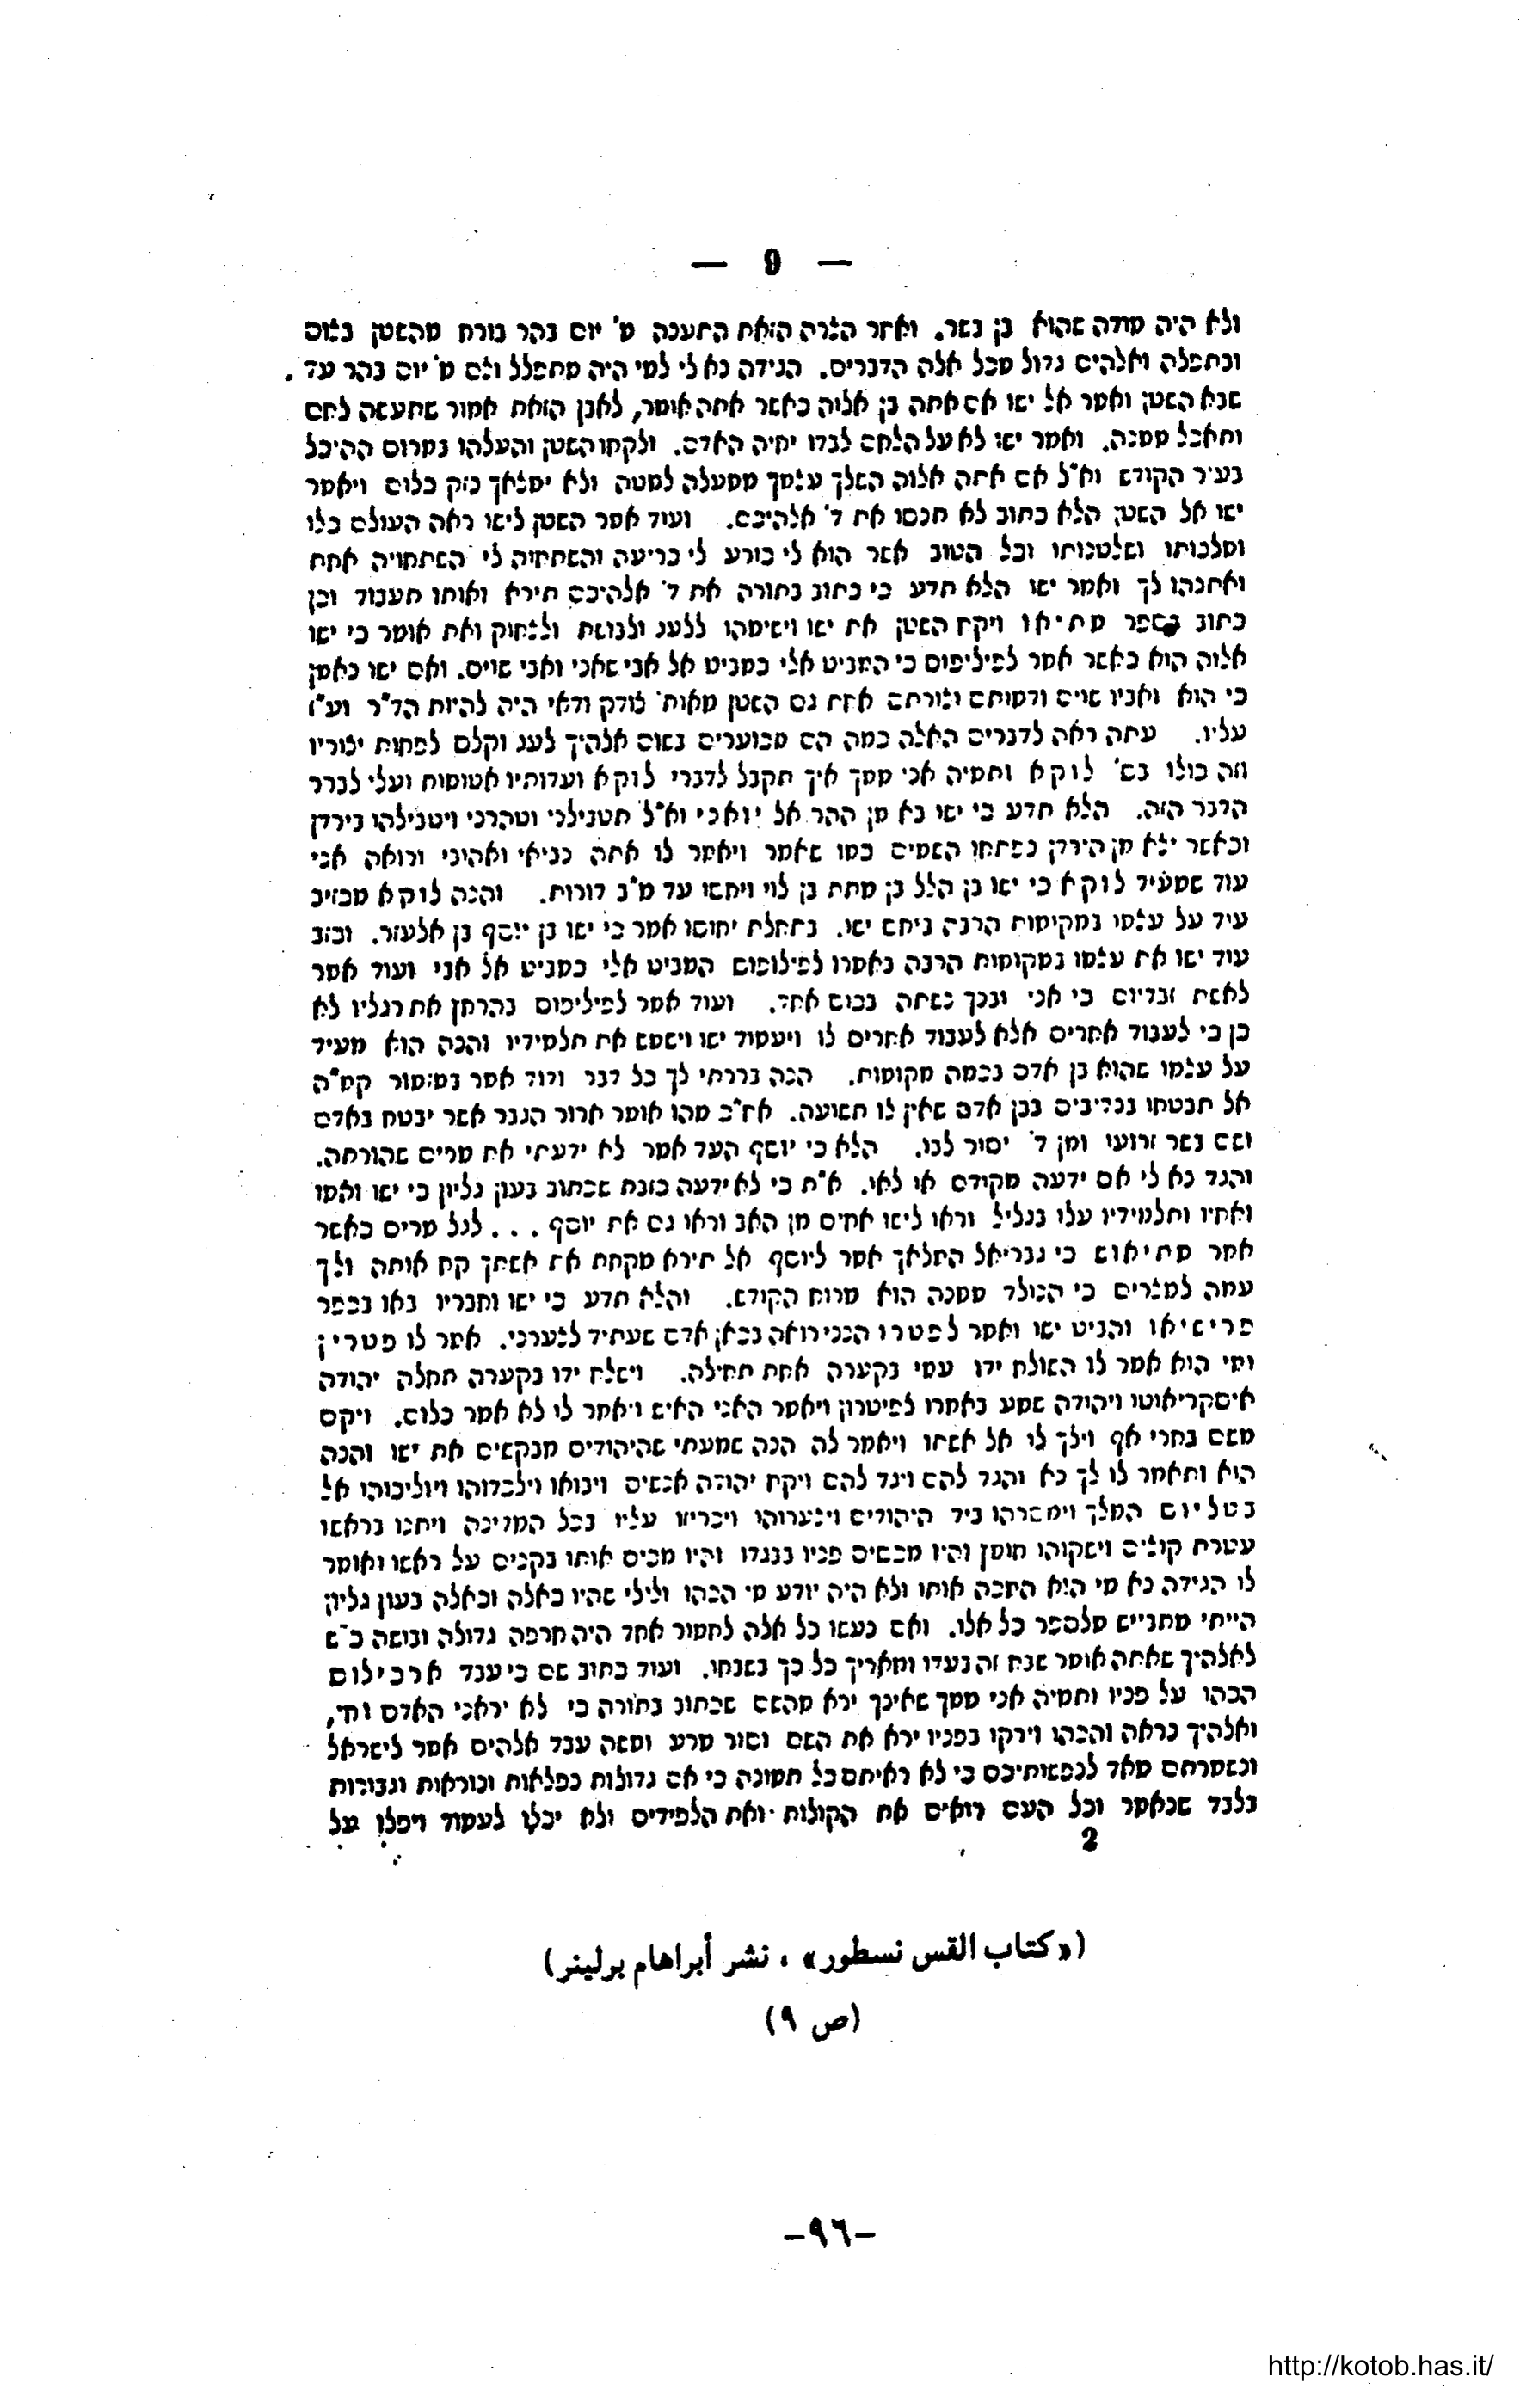 — 9 —
ולא היה מודה שהוא בן בשר. ואחר הצרה הזאת התענה מ' יום בהר בורח מהשטן בצום
ובתפלה ואלהים גדול מכל אלה הדברים. הגידה נא לי למי היה מתפלל וצם מ' יום בהר עד
שבא השטן ואמר אל ישו אם אתה בן אלוה כאשר אתה אומר, לאבן הזאת אמור שתעשה לחם
ותאכל ממנה. ואמר ישו לא על הלחם לבדו יחיה האדם. ולקחו השטן והעלהו במרום ההיכל
בעיר הקודש וא"ל אם אתה אלוה השלך עצמך ממעלה למטה ולא ימצאך נזק כלום ויאמר
ישו אל השטן הלא כתוב לא תנסו את ד' אלהיכם. ועוד אמר השטן לישו ראה העולם כלו
ומלכותו ושלטנותו וכל הטוב אשר הוא לי כורע לי כריעה והשתחוה לי השתחויה אחת
ואתנהו לך ואמר ישו הלא תדע כי כתוב בתורה את ד' אלהיכם תירא ואותו תעבוד וכן
כתוב בספר מתיאו ויקח השטן את ישו וישימהו ללעג ולבושת ולצחוק ואת אומר כי ישו
אלוה הוא כאשר אמר לפיליפוס כי המביט אלי כמביט אל אבי שאני ואבי שוים. ואם ישו נאמן
כי הוא ואביו שוים ודמותם וצורתם אחת גם השטן צודק ודאי היה להיות הד"ר וע"ז
עליו. עתה ראה לדברים האלה כמה הם מכוערים בשום אלהיך לעג וקלס לפחות יצוריו
וזה כולו בס' לוקא ותמיה אני ממך איך תקבל לדברי לוקא ועדותיו אטומות ועלי לברר
הדבר הזה. הלא תדע כי ישו בא מן ההר אל יואני וא"ל תטבילני וטהרני ויטבילהו בירדן
וכאשר יצא מן הירדן נפתחו השמים כמו שאמר ויאמר לו אתה נביאי ואהובי ורואה אני
עוד שמעיד לוקא כי ישו בן הלל בן מתת בן לוי ויחשו עד מ"ב דורות. והנה לוקא מכזיב
עיד על עצמו במקומות הרבה ביחס ישו. בתחלת יחוסו אמר כי ישו בן יוסף בן אלעזר. וכזב
עוד ישו את עצמו במקומות הרבה באמרו לפילופוס המביט אלי כמביט אל אבי ועוד אמר
לאשת זבדיום כי אני ובנך נשתה בכוס אחד. ועוד אמר לפיליפוס בהרחן את רגליו לא
כן כי לעבוד אחרים אלא לעבוד אחרים לו ויעמוד ישו וישמש את תלמידיו והנה הוא מעיד
על עצמו שהוא בן אדם בכמה מקומות. הנה בררתי לך כל דבר ודוד אמר במזמור קמ"ה
אל תבטחו בנדיבים בבן אדם שאין לו תשועה. אח"כ מהו אומר ארור הגבר אשר יבטח באדם
ושם בשר זרועו ומן ד' יסור לבו. הלא כי יוסף העד אמר לא ידעתי את מרים שהורתה.
והגד נא לי אם ידעה מקודם או לאו. א"ת כי לא ידעה כזבת שכתוב בעון גליון כי ישו ואמו
ואחיו ותלמידיו עלו בגליל וראו לישו אחים מן האב וראו גם את יוסף . . . לגל מרים כאשר
אמר מתיאוש כי גבריאל המלאך אמר ליוסף אל תירא מקחת את אשתך קח אותה ולך
עמה למצרים כי הנולד ממנה הוא מרוח הקודש. והלא תדע כי ישו וחבריו באו בכפר
פרישיאו והביט ישו ואמר לפטרו הנני רואה בכאן אדם שעתיד לצערני. אמר לו פטרין
ומי הוא אמר לו השולח ידו עמי בקערה אחת תחילה. וישלח ידו בקערה תחלה יהודה
איסקריאוטו ויהודה שמע באמרו לפיטרון ויאמר האני האיש ויאמר לו לא אמר כלום. ויקם
משם בחרי אף וילך לו אל אשתו ויאמר לה הנה שמעתי שהיהודים מבקשים את ישו והנה
הוא ותאמר לו לך נא והגד להם ויגד להם ויקח יהודה אנשים ויבואו וילכדוהו ויוליכוהו אל
בטליום המלך וימסרהו ביד היהודים ויצערוהו ויכריזו עליו בכל המדינה ויתנו בראשו
עטרת קוצים וישקוהו חומץ והיו מכסים פניו בבגדו והיו מכים אותו בקנים על ראשו ואומר
לו הגידה נא מי הוא המכה אותו ולא היה יודע מי הכהו ולולי שהיו כאלה וכאלה בעון גליון
הייתי מתבייש מלספר כל אלו. ואם נעשו כל אלה לחמור אחד היה חרפה גדולה ובושה כ"ש
לאלהיך שאתה אומר שבח זה בעדו ומאריך כל כך בשבחו. ועוד כתוב שם כי עבד ארכילום
הכהו על פניו ותמיה אני ממך שאינך ירא מהשם שכתוב בתורה כי לא יראני האדם וחי,
ואלהיך נראה והכהו וירקו בפניו ירא את השם וסור מרע ומשה עבד אלהים אמר לישראל
ונשמרתם מאד לנפשותיכם כי לא ראיתם כל תמונה כי אם גדולות נפלאות ונוראות וגבורות
בלבד שנאמר וכל העם רואים את הקולות ואת הלפידים ולא יכלו לעמוד ויפלו על
2
(«كتاب القس نسطور» ، نشر أبراهام برلينر)
(ص ٩)
-٩٦-
http://kotob.has.it/